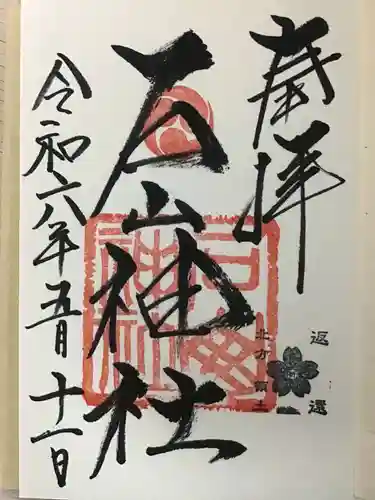 奉拝
石山神社
石山
神社
令和六年五月十一日
北方領土
返還